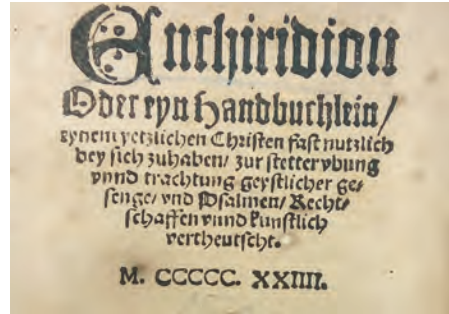 Enchiridion
Oder eyn Handbuchlein/
eynem yetzlichen Christen fast nutzlich
bey sich zuhaben/ zur stetter vbung
vnnd trachtung geystlicher ge⸗
senge/ vnd Psalmen/ Recht⸗
schaffen vnnd kunstlich
vertheutscht.
M. CCCCC. XXIIII.